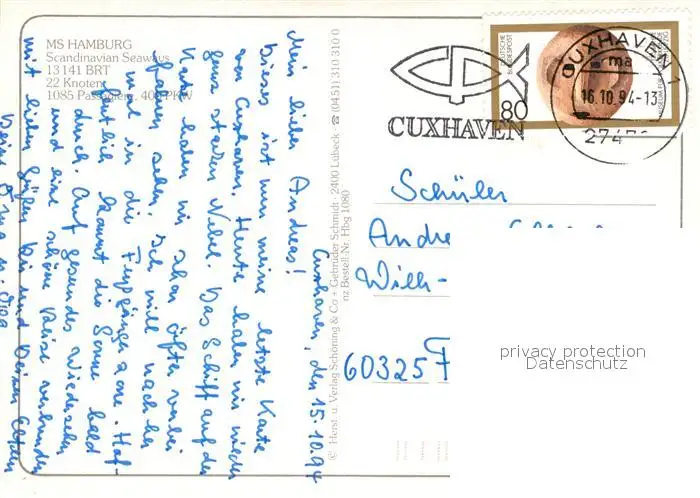 MS HAMBURG
Scandinavian Seaways
13 141 BRT
22 Knoten
1085 Passagiere, 400 PKW
Cuxhaven, den 15.10.94
Mein lieber Andreas!
Dieses ist nun meine letzte Karte
von Cuxhaven. Heute haben wir wieder
ganz starken Nebel. Das Schiff auf der
Karte haben wir schon öfter vorbei
fahren sehen. Ich will nachher
mal in die Fußgängerzone. Hof-
fentlich kommt die Sonne bald
durch. Auf gesundes Wiedersehen
und eine schöne Reise verbunden
mit lieben Grüßen Dir und Deinen Eltern
Deine Oma u. Opa
© Herst. u. Verlag Schöning & Co + Gebrüder Schmidt · 2400 Lübeck · ☎ (0451) 310 310 0
nz Bestell-Nr. Hbg 1080
DEUTSCHE BUNDESPOST
80
CUXHAVEN
CUXHAVEN 1
ma
16.10.94-13
274
Schüler
Andre
Wilh-
60325 F
privacy protection
Datenschutz